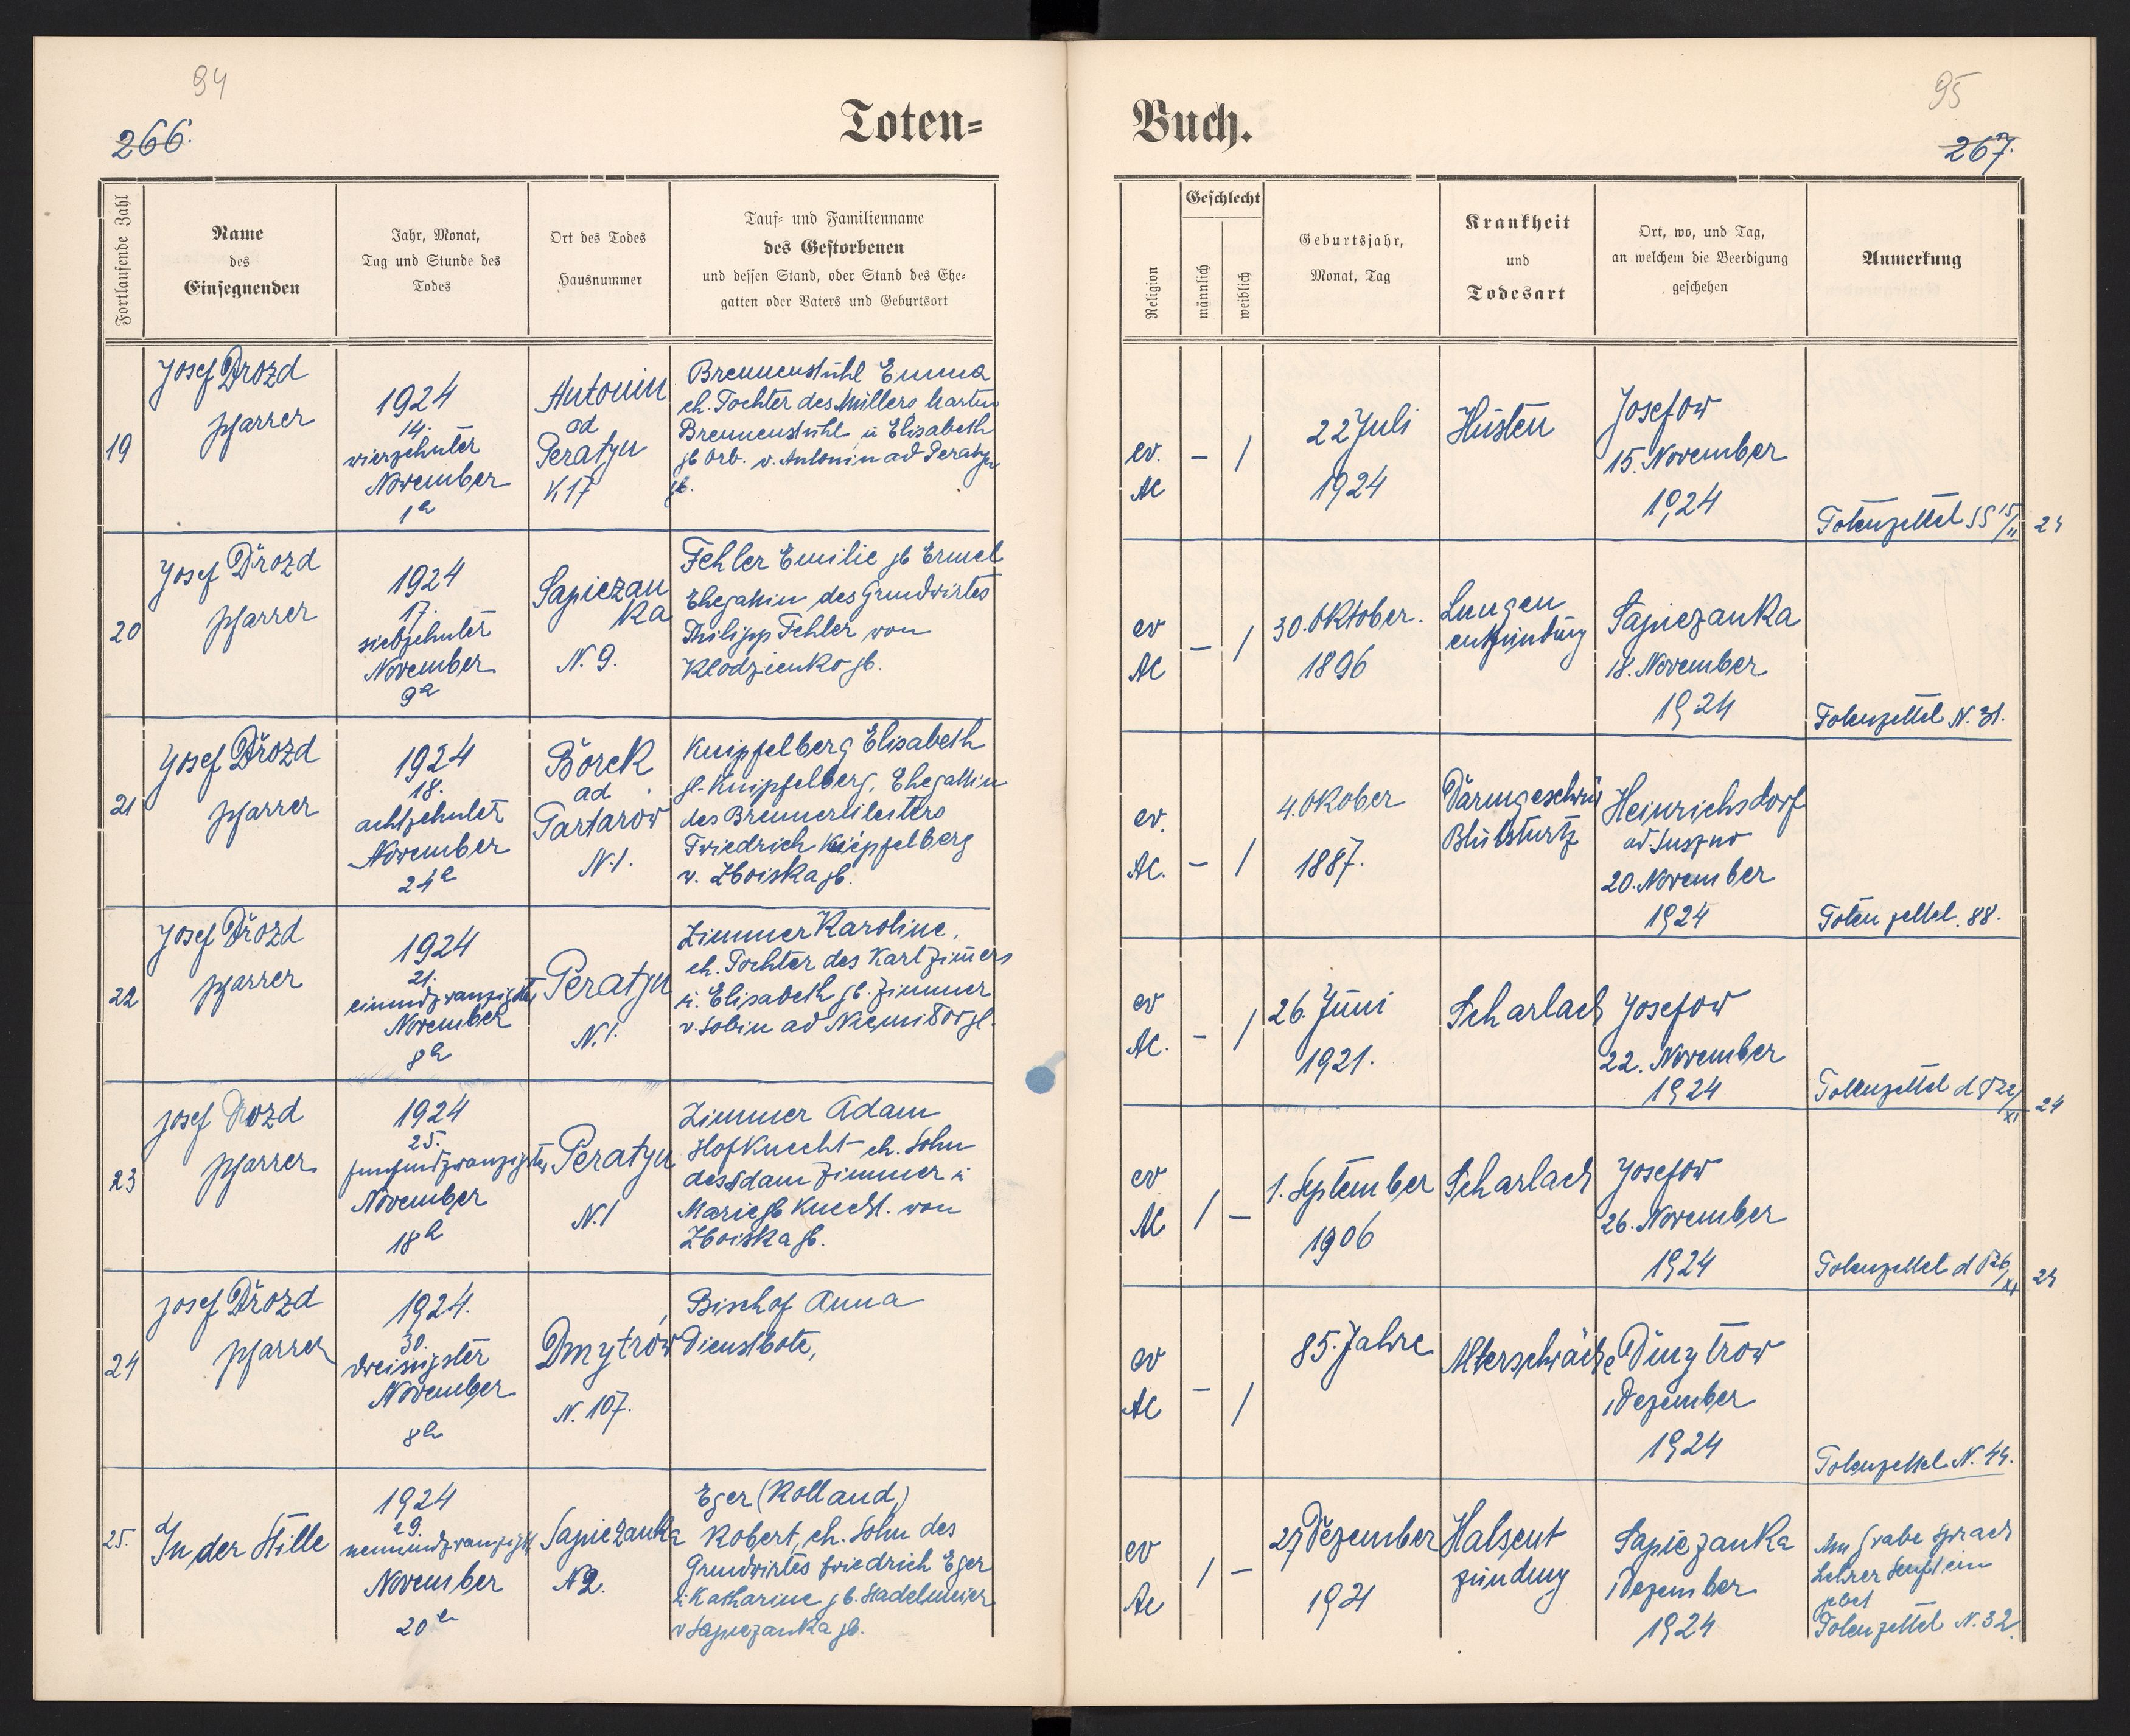 94
266.
Toten=
Fortlaufende Zahl
Name
des
Einsegnenden
Jahr, Monat,
Tag und Stunde des
Todes
Ort des Todes
Hausnummer
Tauf= und Familienname
des Gestorbenen
und dessen Stand, oder Stand des Ehe=
gatten oder Vaters und Geburtsort
19
Josef Drozd
Pfarrer
1924
14.
vierzehnter
November
1h
Antonin
ad
Peratyn
K 17
Brennenstuhl Emma
eh. Tochter des Müllers Martin
Brennenstuhl u Elisabeth
gb Orb. v. Antonin ad Peratyn
gb.
20
Josef Drozd
Pfarrer
1924
17.
siebzehnter
November
9h
Sapiezan
ka
N. 9.
Fehler Emilie gb Ermel
Ehegattin des Grundwirtes
Philipp Fehler von
Klodzienko gb.
21
Josef Drozd
Pfarrer
1924
18.
achtzehnter
November
24h
Borek
ad
Tartarow
N. 1.
Knipfelberg Elisabeth
gb. Knipfelberg, Ehegattin
des Brennereileiters
Friedrich Knipfelberg
v. Zboiska gb.
22
Josef Drozd
Pfarrer
1924
21.
einundzwanzigster
November
8h
Peratyn
N. 1.
Zimmer Karoline,
eh. Tochter des Karl Zimmers
u. Elisabeth gb. Zimmer
v. Sobin ad gb.
23
Josef Drozd
Pfarrer
1924
25.
fünfundzwanzigster
November
18h
Peratyn
N. 1
Zimmer Adam
Hofknecht eh. Sohn
des Adam Zimmer u
Marie gb Knecht. von
Zboiska gb.
24
Josef Drozd
Pfarrer
1924.
30.
dreissigster
November
8h
Dmytrów
N. 107.
Bischof Anna
Dienstbote,
25.
In der Stille
1924
29.
neunundzwanzigst
November
20h
Sapiezanka
N 2.
Eger (Rolland)
Robert, eh. Sohn des
Grundwirtes Friedrich Eger
u. Katharine gb. Stadelmeier
v Sapiezanka gb.
95
267.
Buch.
Religion
Geschlecht
männlich
weiblich
Geburtsjahr,
Monat, Tag
Krankheit
und
Todesart
Ort, wo, und Tag,
an welchem die Beerdigung
geschehen
Anmerkung
ev.
AC
–
/
22 Juli
1924
Husten
Josefow
15. November
1924
Totenzettel 15/11 24
ev
AC
–
/
30. Oktober.
1896
Lungen
entzündung
Sapiezanka
18. November
1924
Totenzettel N. 31.
ev.
AC.
–
/
4. Okober
1887.
Darmgeschwür
Blutsturtz
Heinrichsdorf
ad. Suszno
20. November
1924
Totenzettel. 88.
ev
AC.
–
/
26. Juni
1921.
Scharlach
Josefow
22. November
1924
Totenzettel d 22/XI 24
ev
AC
/
–
1. September
1906
Scharlach
Josefow
26. November
1924
Totenzettel d 26/XI 24
ev
AC
–
/
85. Jahre
Alterschwäche
Dmytrow
1 Dezember
1924
Totenzettel N. 44.
ev
AC
/
–
27 Dezember
1921
Halsent
zündung
Sapiezanka
1 Dezember
1924
Am Grabe sprach
Lehrer ein
gebet
Totenzettel N. 32.